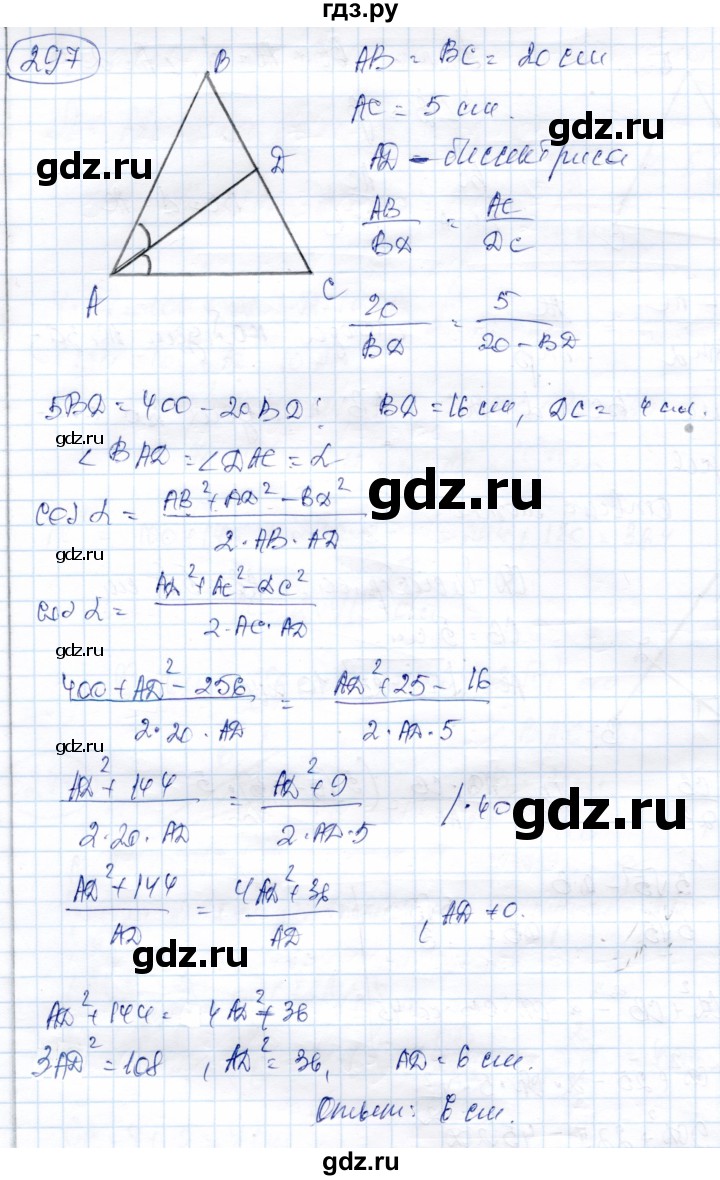 гдз.ру
297
B
AB = BC = 20 см
AC = 5 см.
gdz.ru
D
AD - биссектриса
gdz.ru
AB/BD = AC/DC
A
C
20/BD = 5/(20-BD)
5BD = 400 - 20BD; BD = 16 см, DC = 4 см.
gdz.ru
∠BAD = ∠DAC = α
cos α = (AB² + AD² - BD²)/(2·AB·AD)
gdz.ru
gdz.ru
cos α = (AD² + AC² - DC²)/(2·AC·AD)
gdz.ru
(400 + AD² - 256)/(2·20·AD) = (AD² + 25 - 16)/(2·AD·5)
gdz.ru
(AD² + 144)/(2·20·AD) = (AD² + 9)/(2·AD·5) /·40
gdz.ru
(AD² + 144)/AD = (4AD² + 36)/AD, AD ≠ 0.
gdz.ru
AD² + 144 = 4AD² + 36
3AD² = 108, AD² = 36, AD = 6 см.
gdz.ru
Ответ: 6 см.
gdz.ru